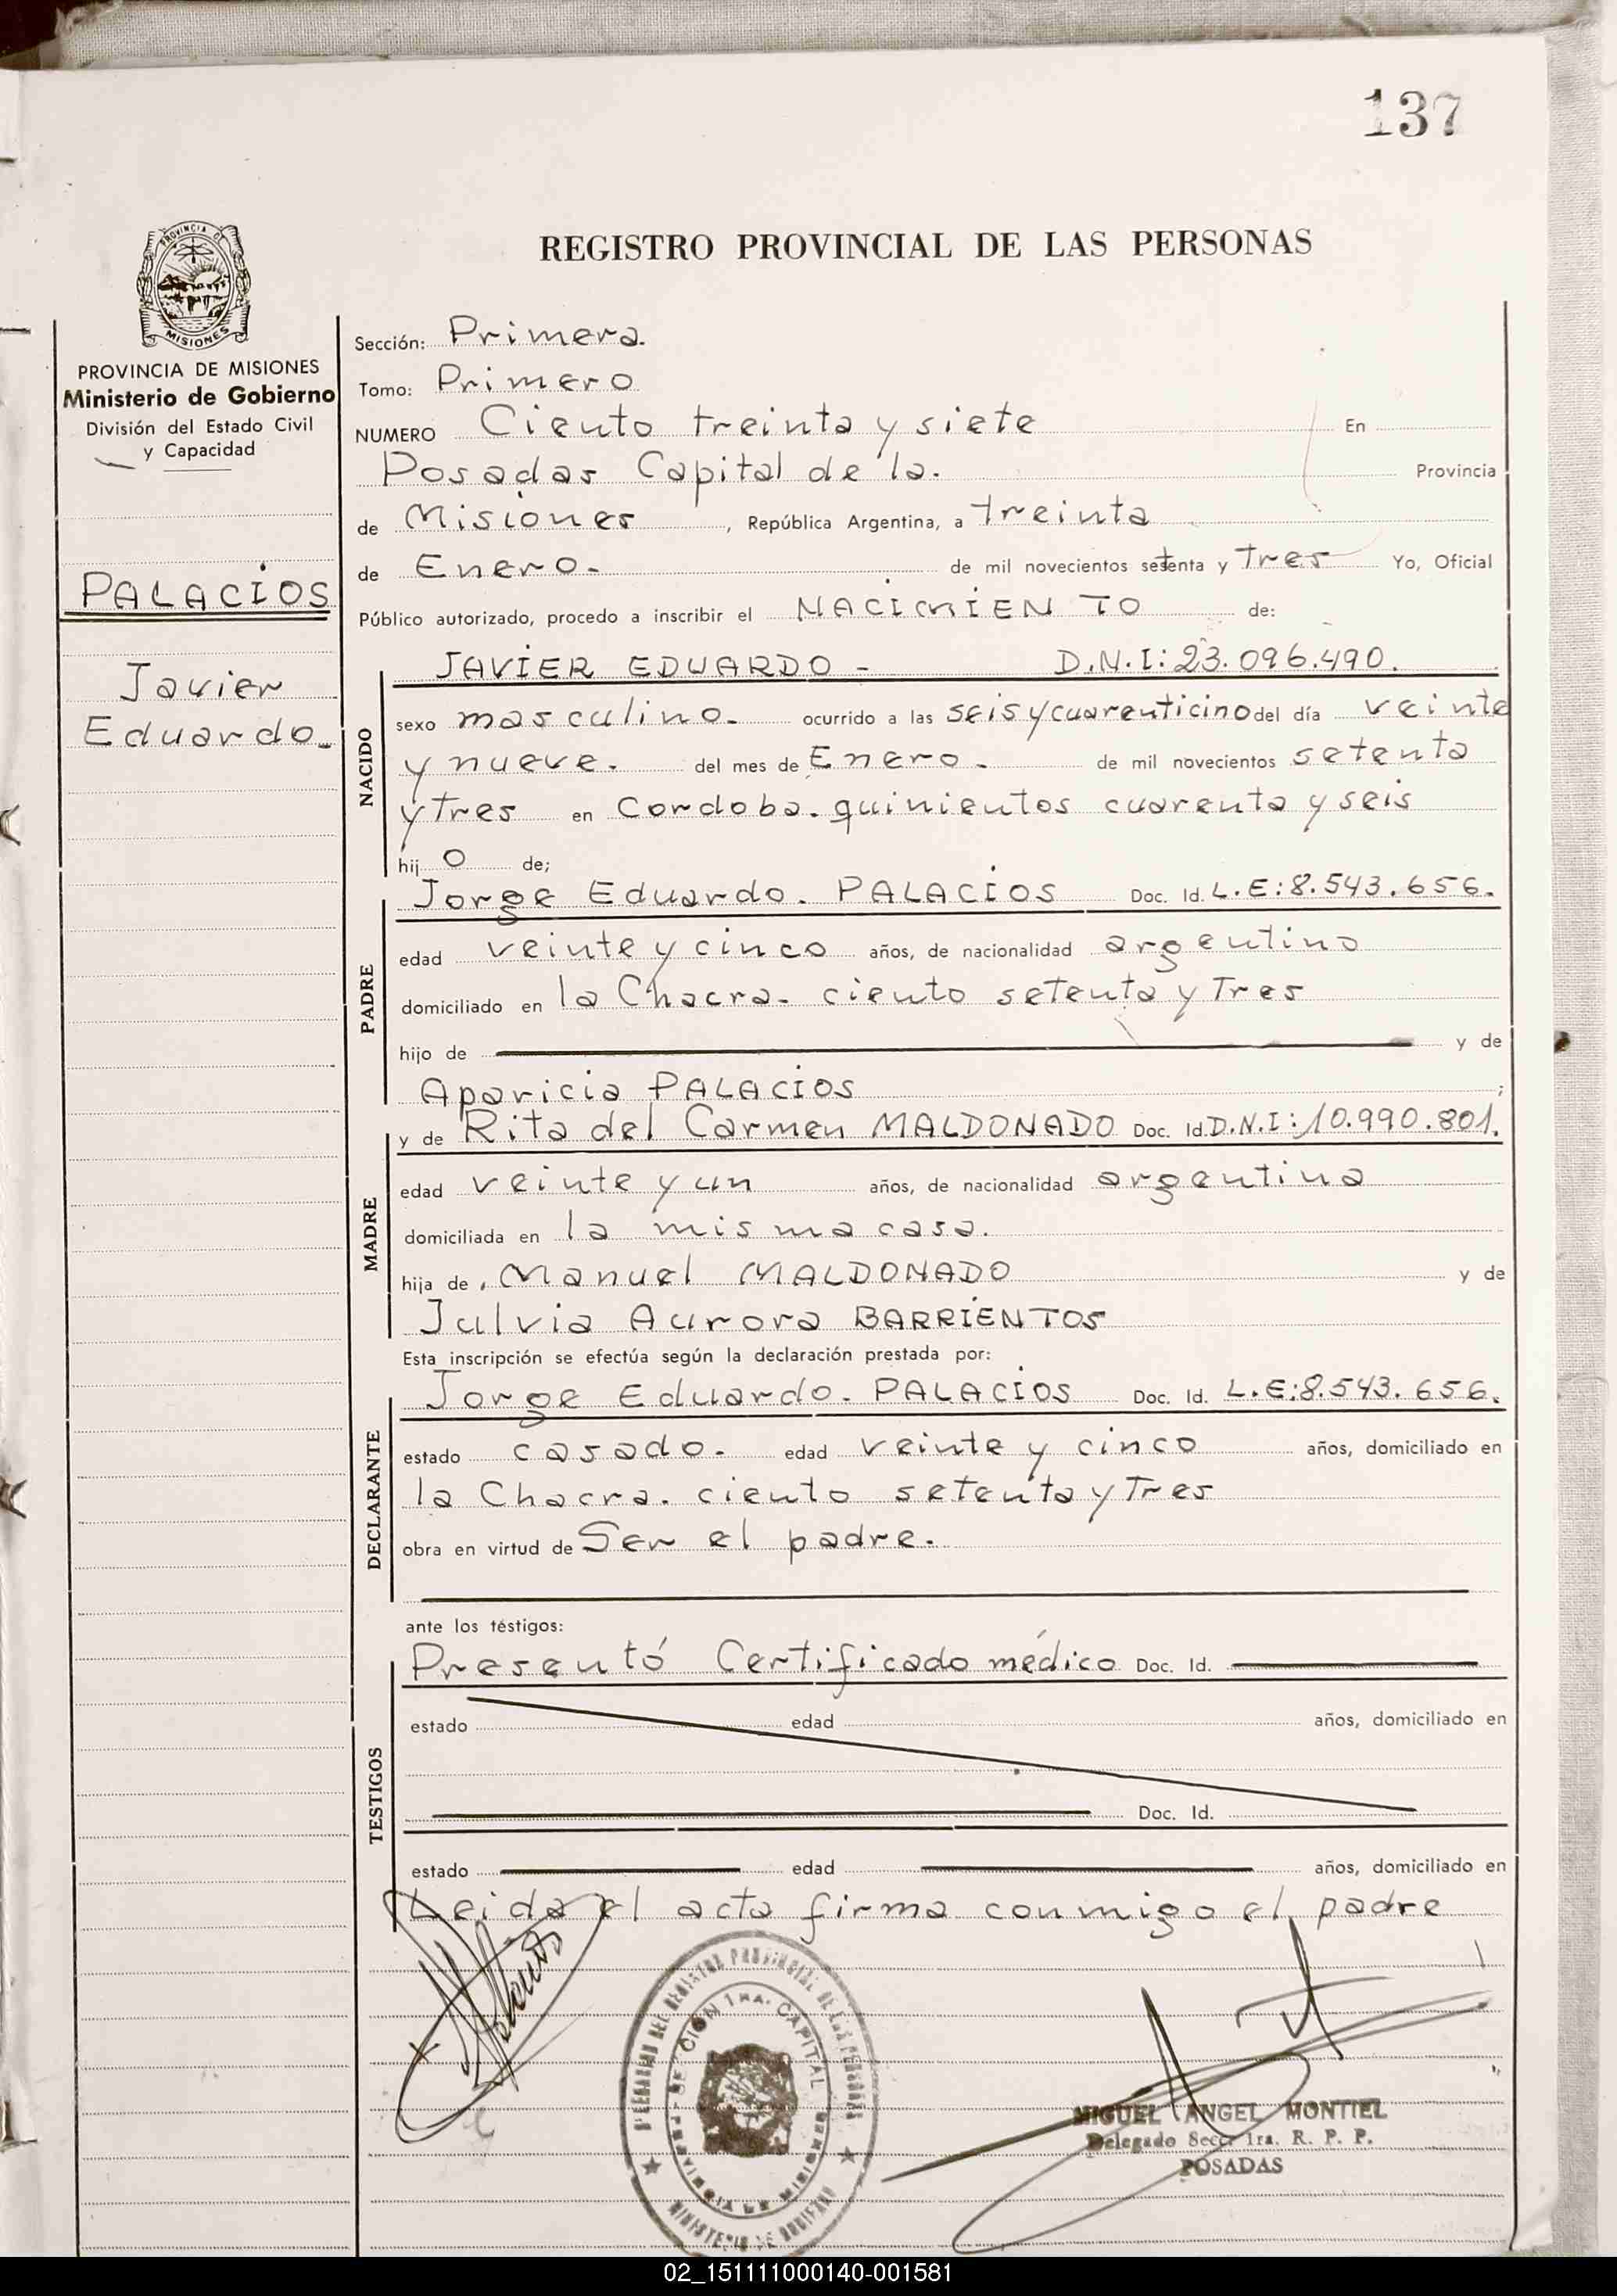 137
REGISTRO PROVINCIAL DE LAS PERSONAS
PROVINCIA DE
MISIONES
PROVINCIA DE MISIONES
Ministerio de Gobierno
División del Estado Civil
y Capacidad
PALACIOS
Javier
Eduardo.
Sección: Primera.
Tomo: Primero
NUMERO Ciento treinta y siete En
Posadas Capital de la. Provincia
de Misiones, República Argentina, a treinta
de Enero. de mil novecientos setenta y Tres Yo, Oficial
Público autorizado, procedo a inscribir el NACIMIENTO de:
NACIDO
JAVIER EDUARDO - D.N.I: 23.096.490.
sexo masculino. ocurrido a las seis y cuarenticino del día veinte
y nueve. del mes de Enero. de mil novecientos setenta
y tres en Cordoba. quinientos cuarenta y seis
hij o de;
PADRE
Jorge Eduardo. PALACIOS Doc. Id. L.E:8.543.656.
edad veinte y cinco años, de nacionalidad argentino
domiciliado en la Chacra. ciento setenta y Tres
hijo de y de
Aparicia PALACIOS ;
MADRE
y de Rita del Carmen MALDONADO Doc. Id. D.N.I:10.990.801.
edad veinte y un años, de nacionalidad argentina
domiciliada en la misma casa.
hija de Manuel MALDONADO y de
Julvia Aurora BARRIENTOS
Esta inscripción se efectúa según la declaración prestada por:
DECLARANTE
Jorge Eduardo. PALACIOS Doc. Id. L.E:8.543.656.
estado casado. edad veinte y cinco años, domiciliado en
la Chacra. ciento setenta y Tres
obra en virtud de Ser el padre.
ante los téstigos:
TESTIGOS
Presentó Certificado médico Doc. Id.
estado edad años, domiciliado en
Doc. Id.
estado edad años, domiciliado en
Leida el acta firma conmigo el padre
DEL REGISTRO PROVINCIAL DE LAS PERSONAS
SECCION 1RA. CAPITAL
PROVINCIA DE MISIONES
MINISTERIO DE GOBIERNO
MIGUEL ANGEL MONTIEL
Delegado Secc. 1ra. R. P. P.
POSADAS
02_151111000140-001581